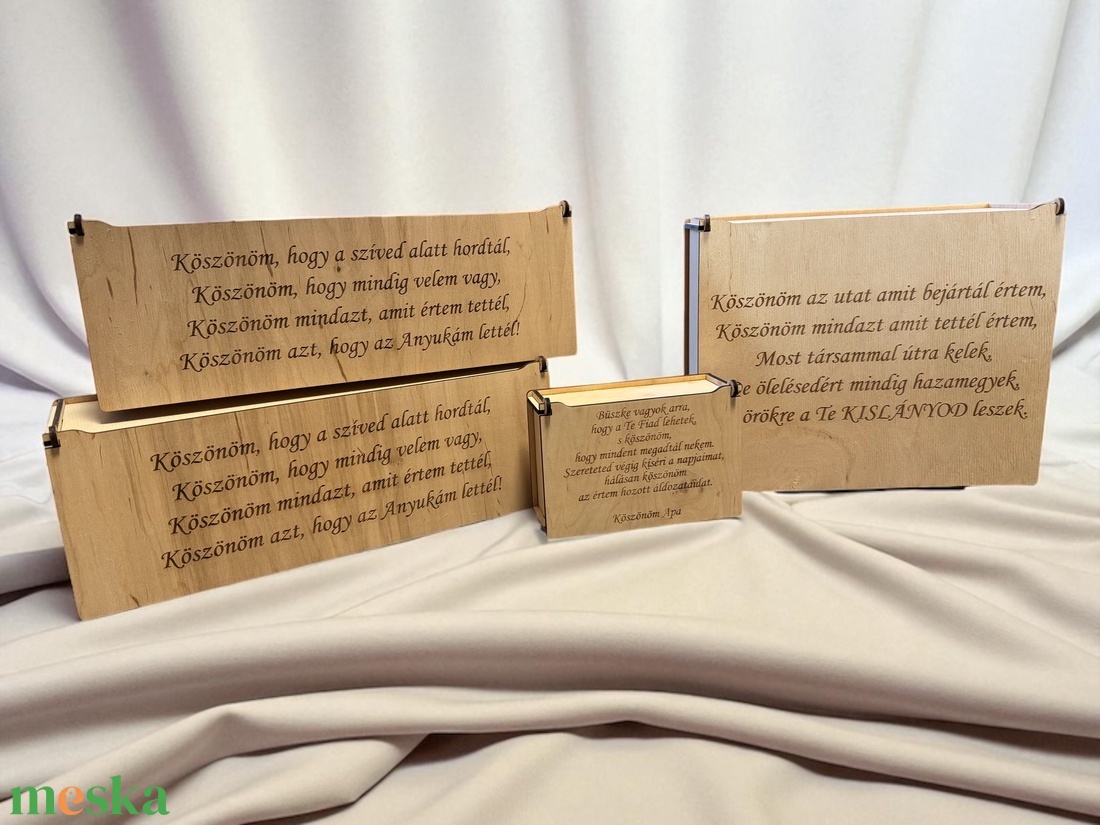 Köszönöm, hogy a szíved alatt hordtál,
Köszönöm, hogy mindig velem vagy,
Köszönöm mindazt, amit értem tettél,
Köszönöm azt, hogy az Anyukám lettél!
Köszönöm, hogy a szíved alatt hordtál,
Köszönöm, hogy mindig velem vagy,
Köszönöm mindazt, amit értem tettél,
Köszönöm azt, hogy az Anyukám lettél!
Büszke vagyok arra,
hogy a Te Fiad lehetek,
s köszönöm,
hogy mindent megadtál nekem.
Szereteted végig kíséri a napjaimat,
hálásan köszönöm
az értem hozott áldozataidat.
Köszönöm Apa
Köszönöm az utat amit bejártál értem,
Köszönöm mindazt amit tettél értem,
Most társammal útra kelek,
ölelésedért mindig hazamegyek,
örökre a Te KISLÁNYOD leszek.
meska